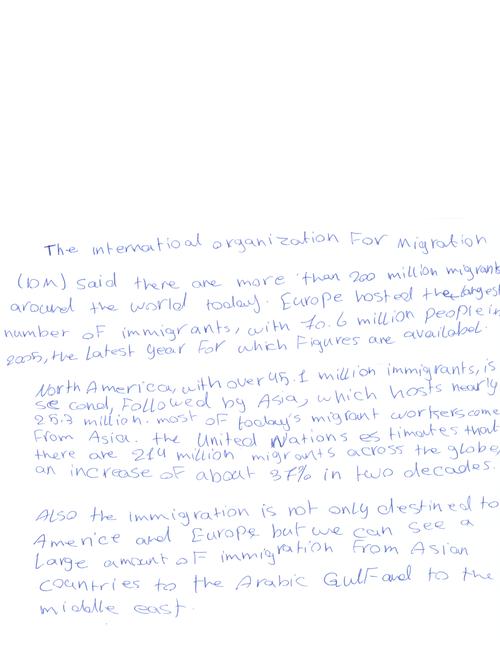 The internatioal organization For Migration
(IOM) said there are more than 200 million migrants
around the world today. Europe hosted the largest
number of immigrants, with 70.6 million people in
2005, the latest year For which Figures are availabel.
North America, with over 45.1 million immigrants, is
se cond, Followed by Asia, which hosts nearly
25.3 million. most of today's migrant workers come
From Asia. the United Nations es timates that
there are 214 million migrants across the globe,
an increase of about 37% in two decades.
Also the immigration is not only destined to
Americe and Europe but we can see a
large amount of immigration From Asian
countries to the Arabic Gulf and to the
middle east.